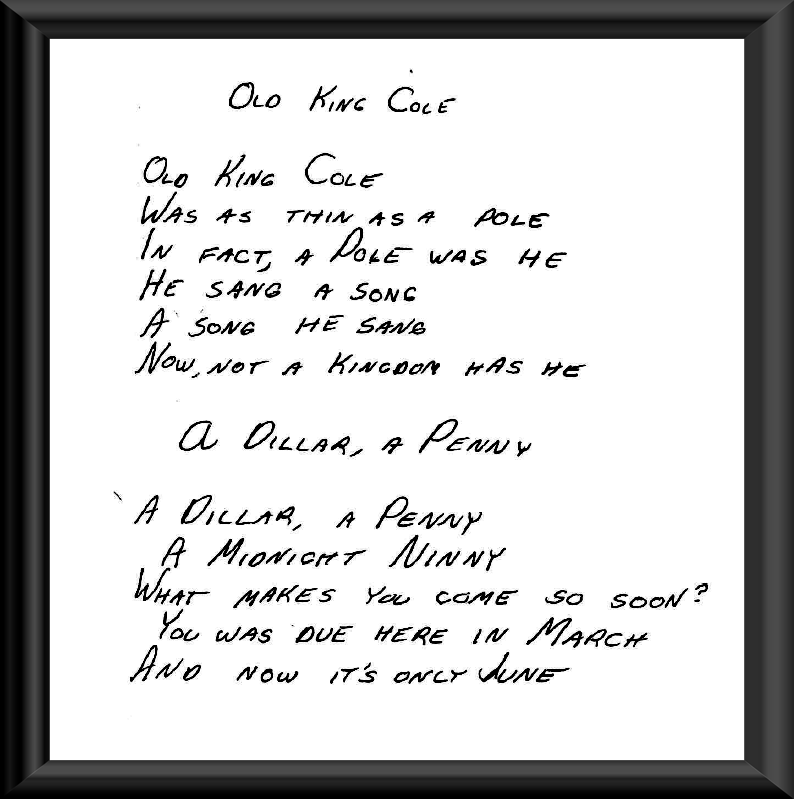 Old King Cole
Old King Cole
Was as thin as a pole
In fact, a Pole was he
He sang a song
A song he sang
Now, not a kingdom has he
A Dillar, a Penny
A Dillar, a Penny
A Midnight Ninny
What makes you come so soon?
You was due here in March
And now it's only June